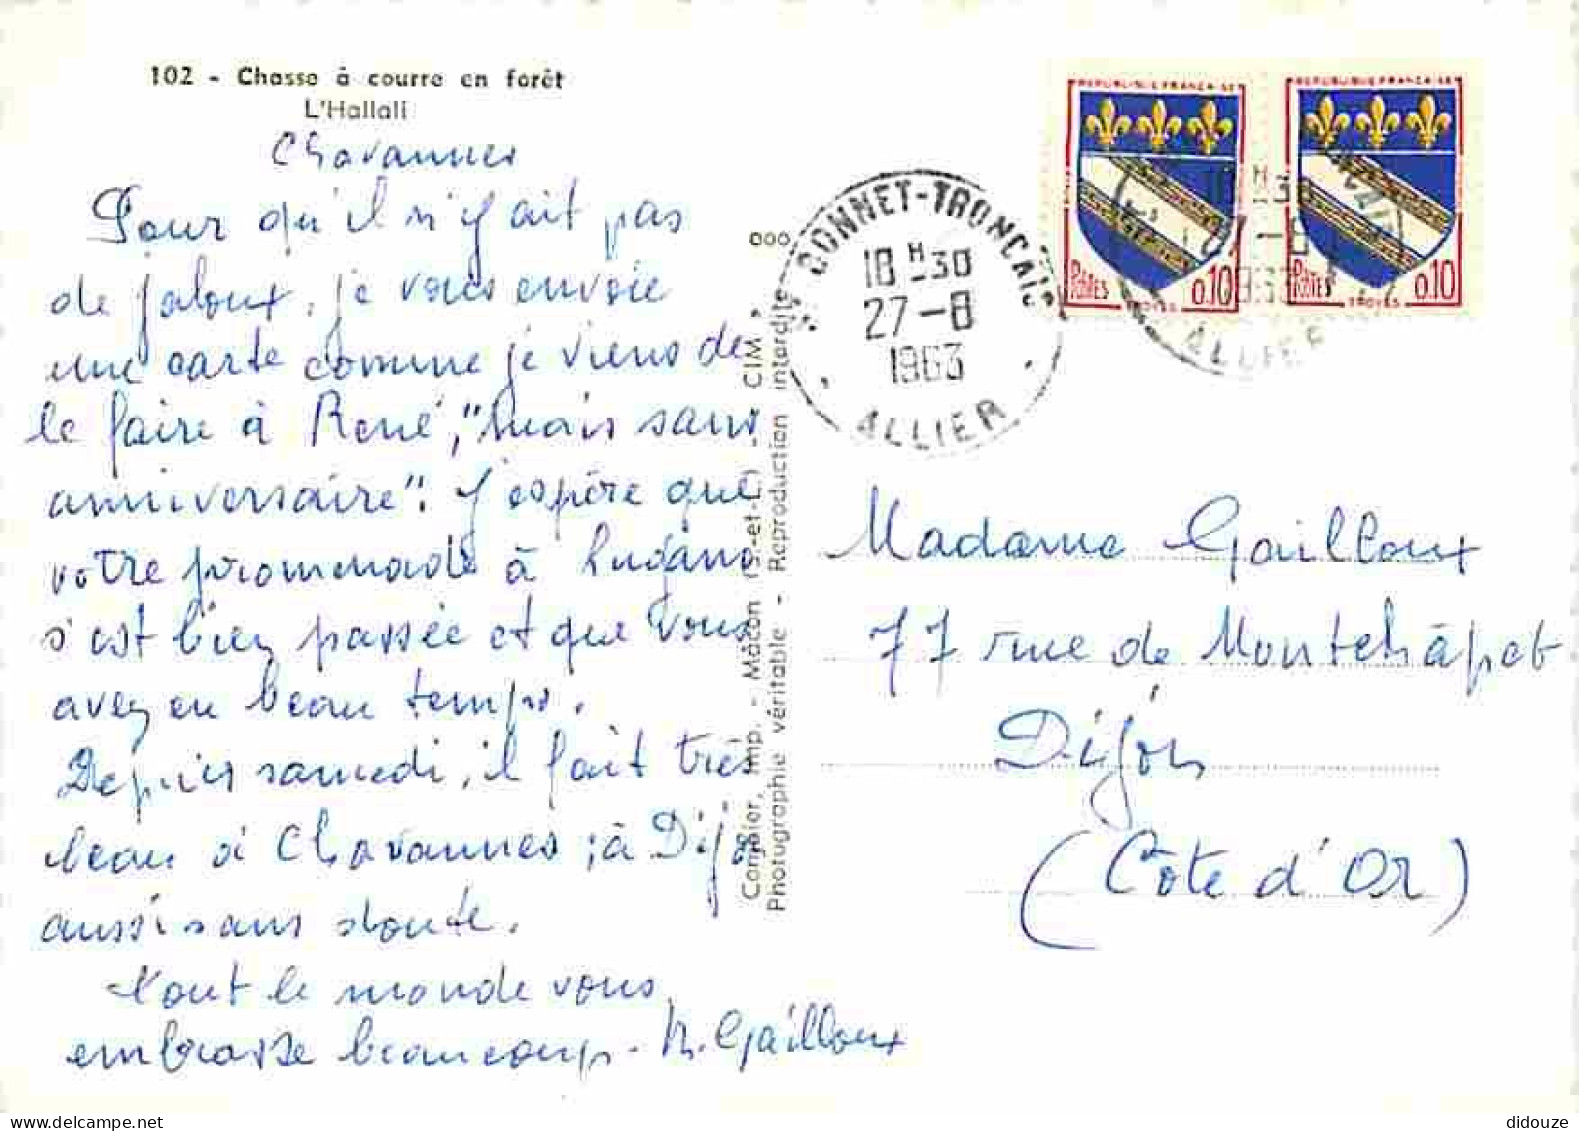 102 - Chasse à courre en forêt
L'Hallali
Chavannes
Pour qu'il n'y ait pas
de jaloux, je vous envoie
une carte comme je viens de
le faire à René, "mais sans
anniversaire". J'espère que
votre promenade à Lugano
s'est bien passée et que vous
avez eu beau temps.
Depuis samedi, il fait très
beau à Chavannes ; à Dijon
aussi sans doute.
Tout le monde vous
embrasse beaucoup. M. Gailloux
Combier, Imp. - Mâcon (S.-et-L.) - CIM
Photographie véritable - Reproduction interdite
ST BONNET-TRONÇAIS
18 H 30
27-8
1963
ALLIER
REPUBLIQUE FRANÇAISE
POSTES
0,10
TROYES
REPUBLIQUE FRANÇAISE
POSTES
0,10
TROYES
18 H 30
27-8
1963
ALLIER
Madame Gailloux
77 rue de Montchâpet
Dijon
(Côte d'Or)
didouze